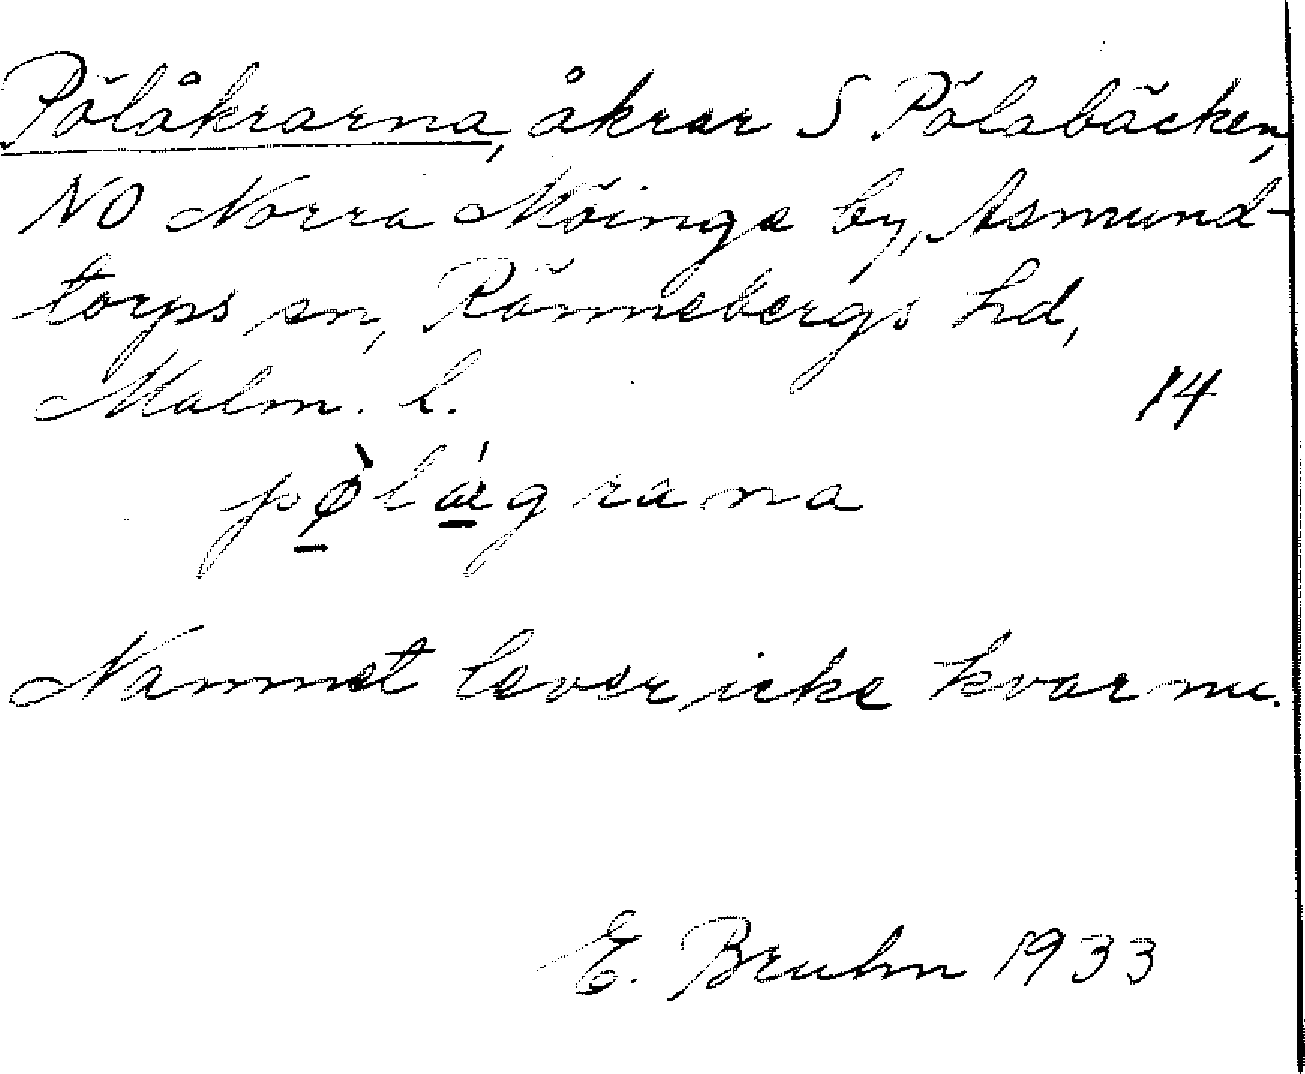 Pölåkrarna, åkrar S Pölabäcken,
NO Norra Möinge by, Asmund-
torps sn, Rönnebergs hd,
Malm. l. 14
pø̱̀lá̱grana
Namnet lever icke kvar nu.
E. Bruhn 1933